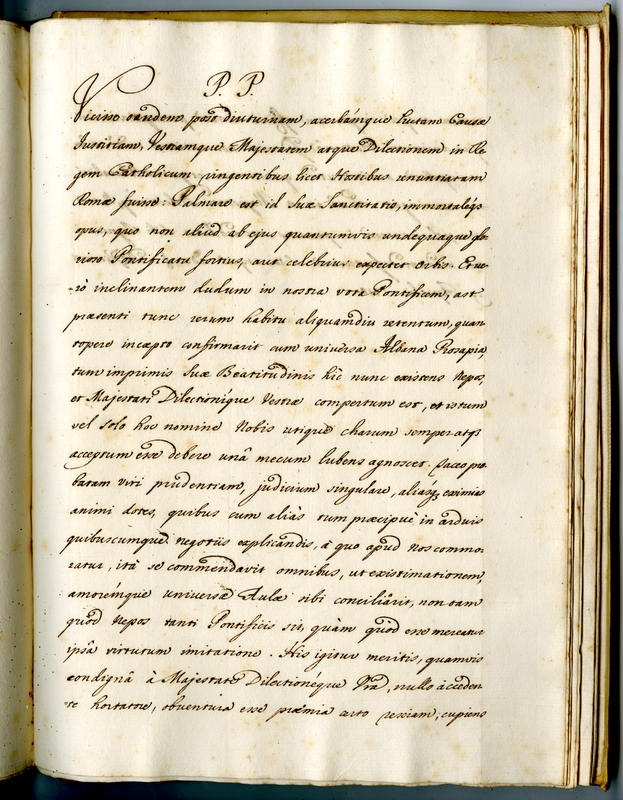 P. P.
Vicisse tandem post diuturnam, acerbámque luctam Causæ
Justitiam, Vestramque Majestatem atque Dilectionem in Re
gem Catholicum ringentibus licet Hostibus renuntiatam
Romæ fuisse: Palmare est id Suæ Sanctitatis, immortaléqs
opus, quo non aliud ab ejus quantumvis undequaque glo
rioso Pontificatu fortius, aut celebrius expectet orbis. Et ve
-rò inclinantem dudum in nostra vota Pontificem, ast
præsenti tunc rerum habitu aliquamdiu retentum, quan
topere incæpto confirmarit cum universa Albana Prosapia,
tum imprimis Suæ Beatitudinis hìc nunc existens Nepos,
et Majestati Dilectioníque Vestræ compertum est, et istum
vel solo hoc nomine Nobis utique charum semper atqs
acceptum esse debere unâ mecum lubens agnoscet. Taceo pro
batam viri prudentiam, judicium singulare, aliasqs eximias
animi dotes, quibus cum aliàs tum præcipuè in arduis
quibuscumque negotiis explicandis, à quo apud nos commo
ratur, ità se commendavit omnibus, ut existimationem,
amorémque universæ Aulæ sibi conciliârit, non tam
quòd Nepos tanti Pontificis sit, quàm quòd esse mereatur
ipsâ virtutum imitatione. His igitur meritis, quamvis
condignâ à Majestate Dilectionéque Vrâ, nullo acceden
-te hortatore, obventura esse præmia certo sciam, cupiens